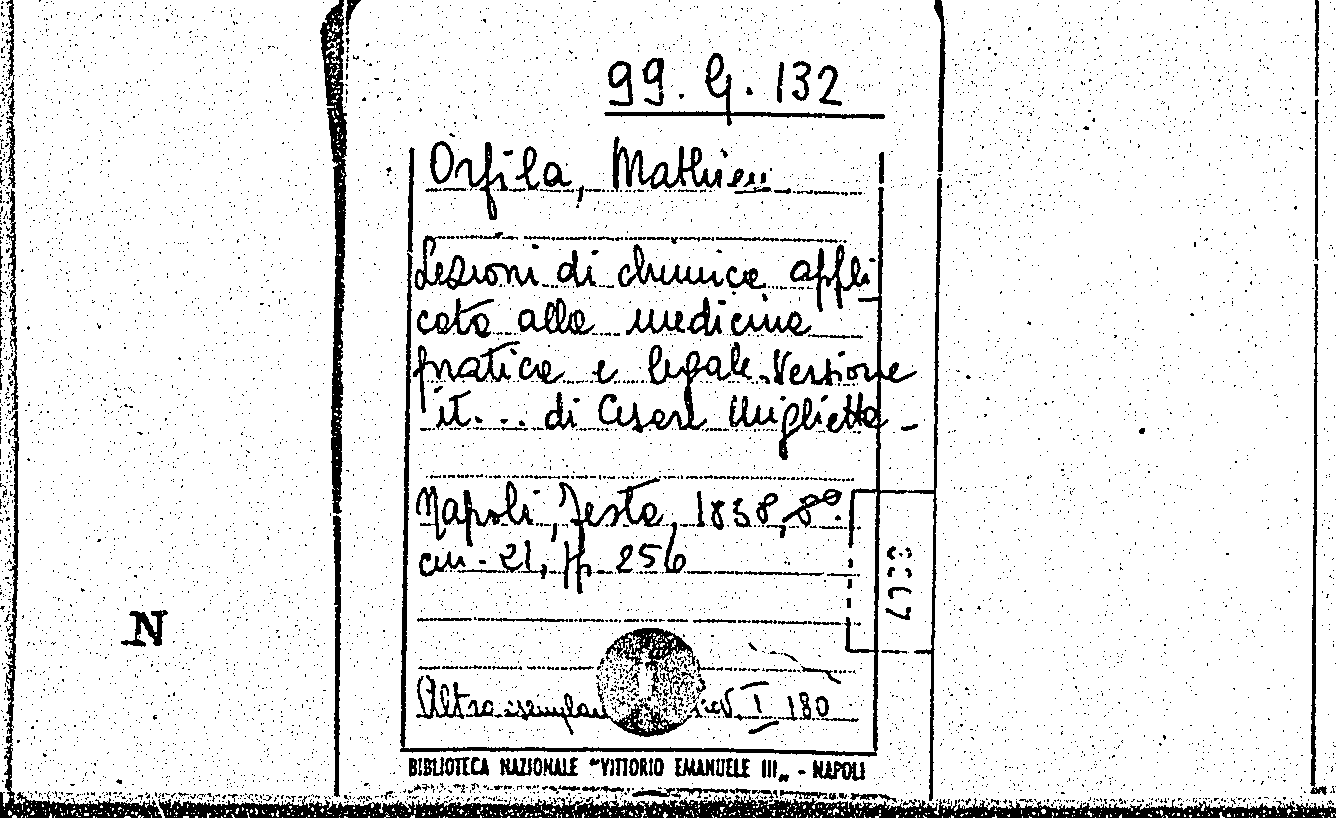 99. G. 132
Orfila, Mathieu
Lezioni di chimica appli
cata alla medicina
pratica e legale. Versione
it... di Cesare Miglietta -
Napoli, Testa, 1838, 8º.
cm. 21, pp. 256
N
Altro esemplare I 180
BIBLIOTECA NAZIONALE "VITTORIO EMANUELE III„ - NAPOLI